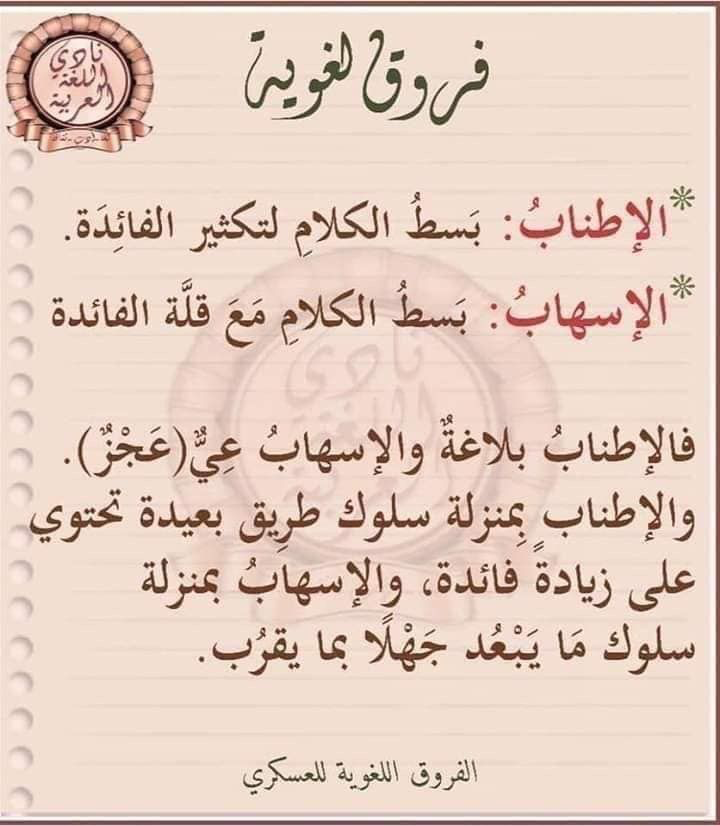 نادي
اللغة
العربية
فروق لغوية
*الإطنابُ: بَسطُ الكلامِ لتكثير الفائِدَة.
*الإسهابُ: بَسطُ الكلامِ مَعَ قلَّة الفائدة
فالإطنابُ بلاغةٌ والإسهابُ عِيٌّ(عَجْزٌ).
والإطناب بِمنزلة سلوك طرِيق بعيدة تحتوي
على زيادةً فائدة، والإسهابُ بمنزلة
سلوك مَا يَبْعُد جَهْلًا بما يقرُب.
الفروق اللغوية للعسكري